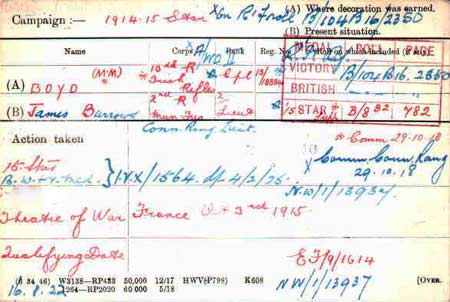 Campaign:— 1914-15 Star
(A) Where decoration was earned.
B/104 B16/2350
(B) Present situation.
Name Corps Rank Reg. No.
MEDAL ROLL PAGE
VICTORY B/104 B16. 2350
BRITISH
15 STAR B/8 B2 782
(A) BOYD (M'M') 15th R Irish Rifles Cpl
(B) James Burrows 2nd R Mun Fus 2 Lieut
Conn Rang. Lieut.
Action taken
Comm 29-10-18
15 Star
B.W.+V. Med. } IVX/1564 df 4/3/25.
Comm. Conn. Rang
29.10.18
NW/1/13937.
Theatre of War France 3rd 1915.
Qualifying Date
EF/9/1614
(6 34 46) W3138—RP433 50,000 12/17 HWV(P798) K608
[Over.
16.8.22 1264—RP2020 60 000 5/18
NW/1/13937